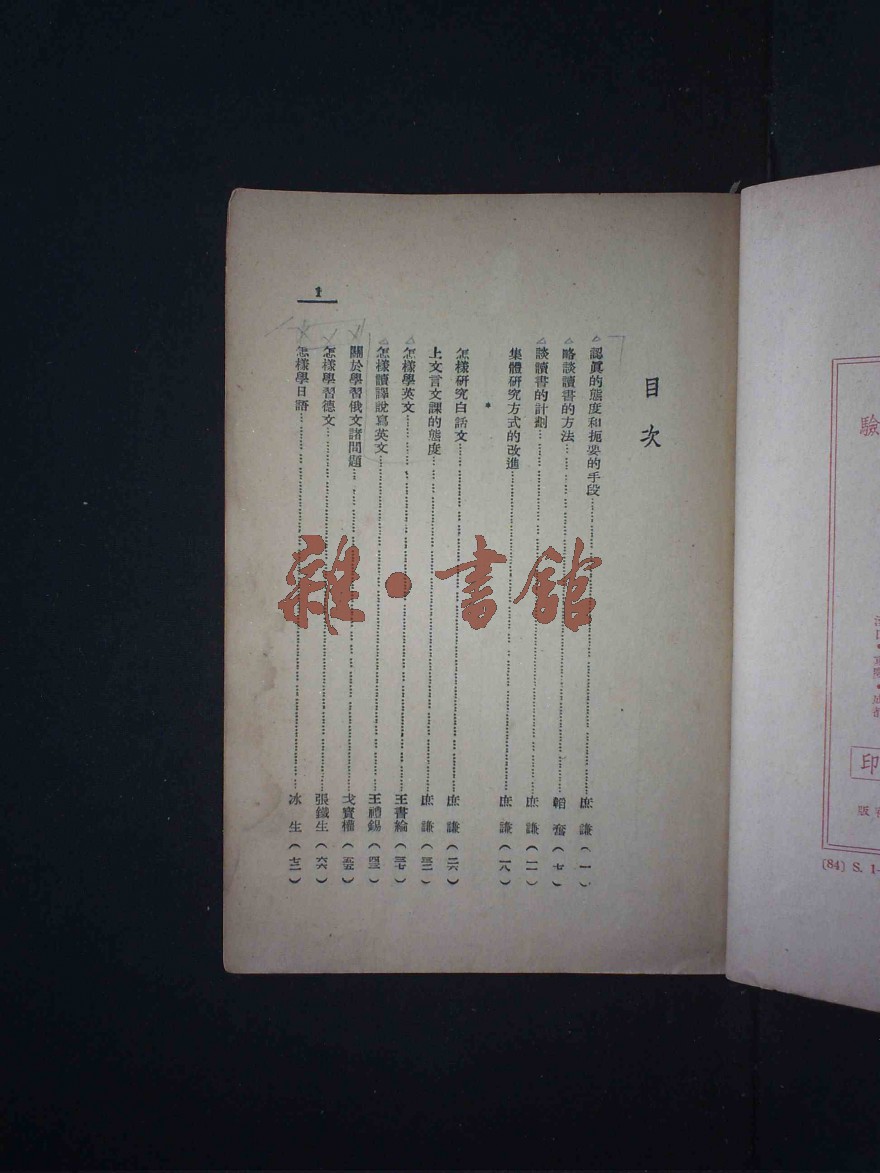 目次
認眞的態度和扼要的手段……庶謙（一）
略談讀書的方法……韜奮（七）
談讀書的計劃……庶謙（一一）
集體研究方式的改進……庶謙（一八）
*
怎樣研究白話文……庶謙（二六）
上文言文課的態度……庶謙（三二）
怎樣學英文……王書綸（三七）
怎樣讀譯說寫英文……王禮錫（四三）
關於學習俄文諸問題……戈寶權（五五）
怎樣學習德文……張鐵生（六六）
怎樣學日語……冰生（七二）
1
雜·書館
驗
印
版
[84] S. 1-